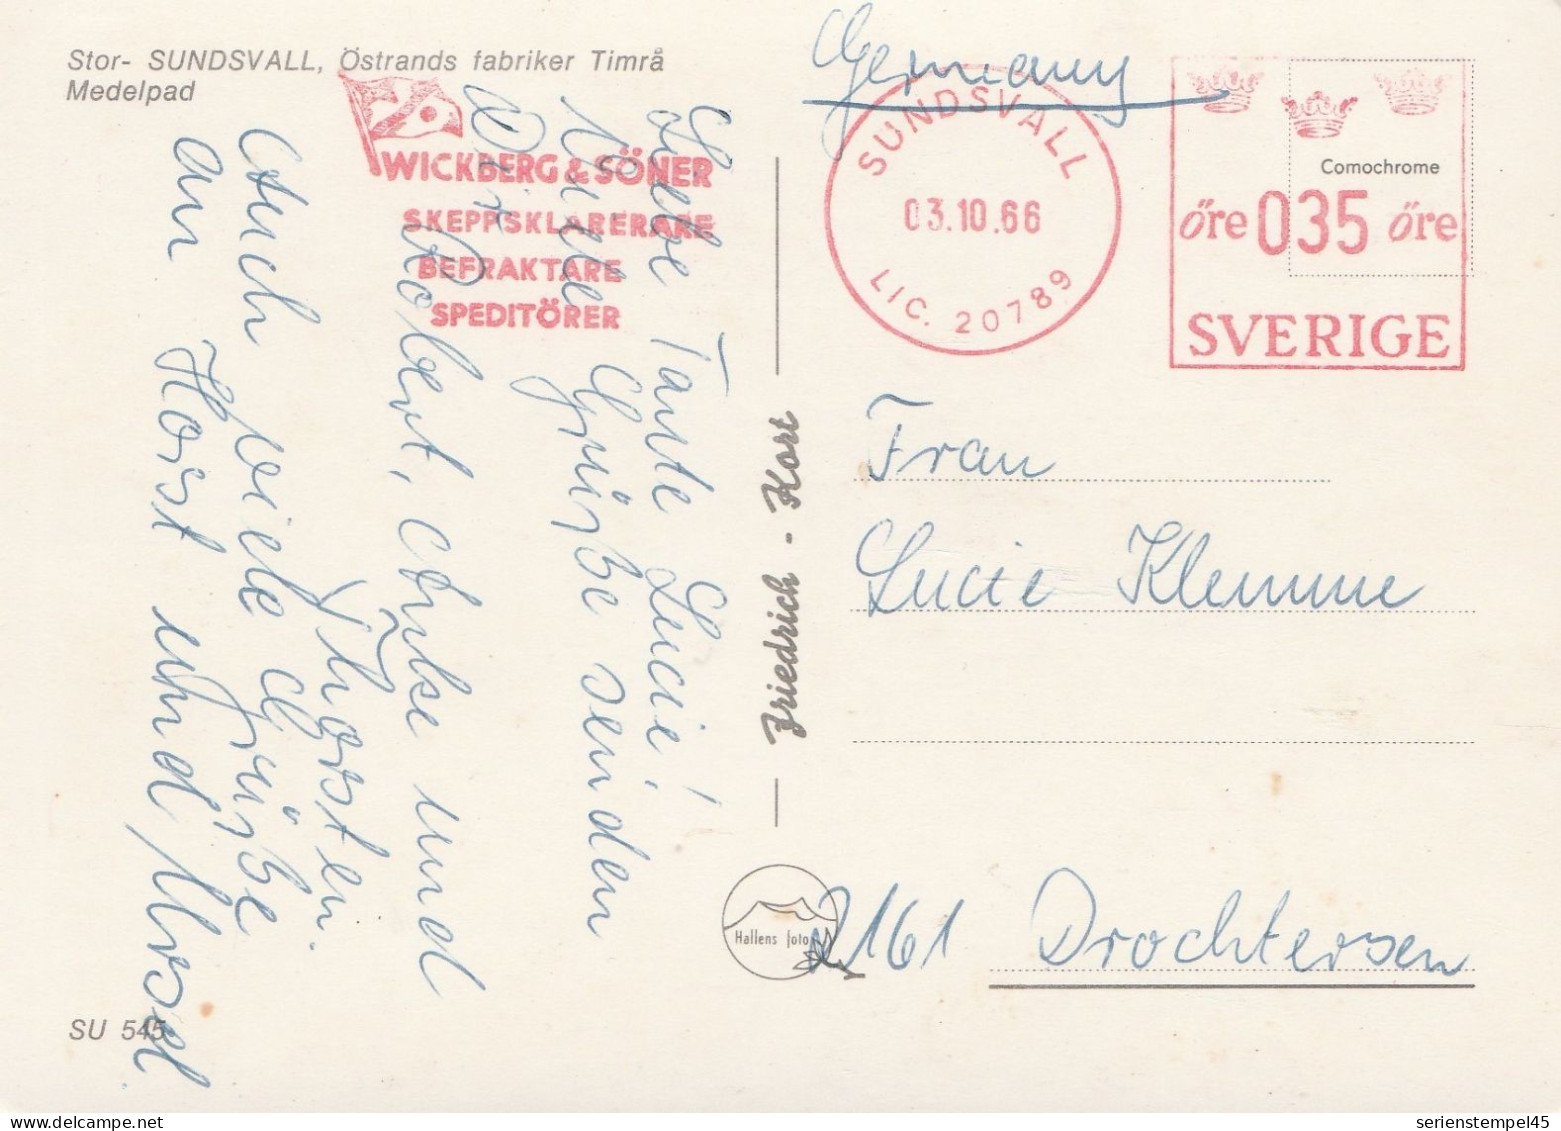 Stor- SUNDSVALL, Östrands fabriker Timrå
Medelpad
WICKBERG & SÖNER
SKEPPSKLARERARE
BEFRAKTARE
SPEDITÖRER
Germany
SUNDSVALL
03.10.66
LIC. 20789
Comochrome
öre 035 öre
SVERIGE
Liebe Tante Lucie!
Viele Grüße senden
Dir Robert, Anke und
Thorsten.
Auch viele Grüße
an Horst und
Friedrich - Kort
Frau
Lucie Klemme
2161 Drochtersen
Hallens foto
SU 545
serienstempel45